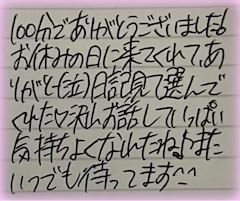 100分でありがとうございました!
お休みの日に来てくれて、あ
りがと(泣)日記見て選んで
くれた♡沢山お話していっぱい
気持ちよくなれたね♪また
いつでも待ってます^^